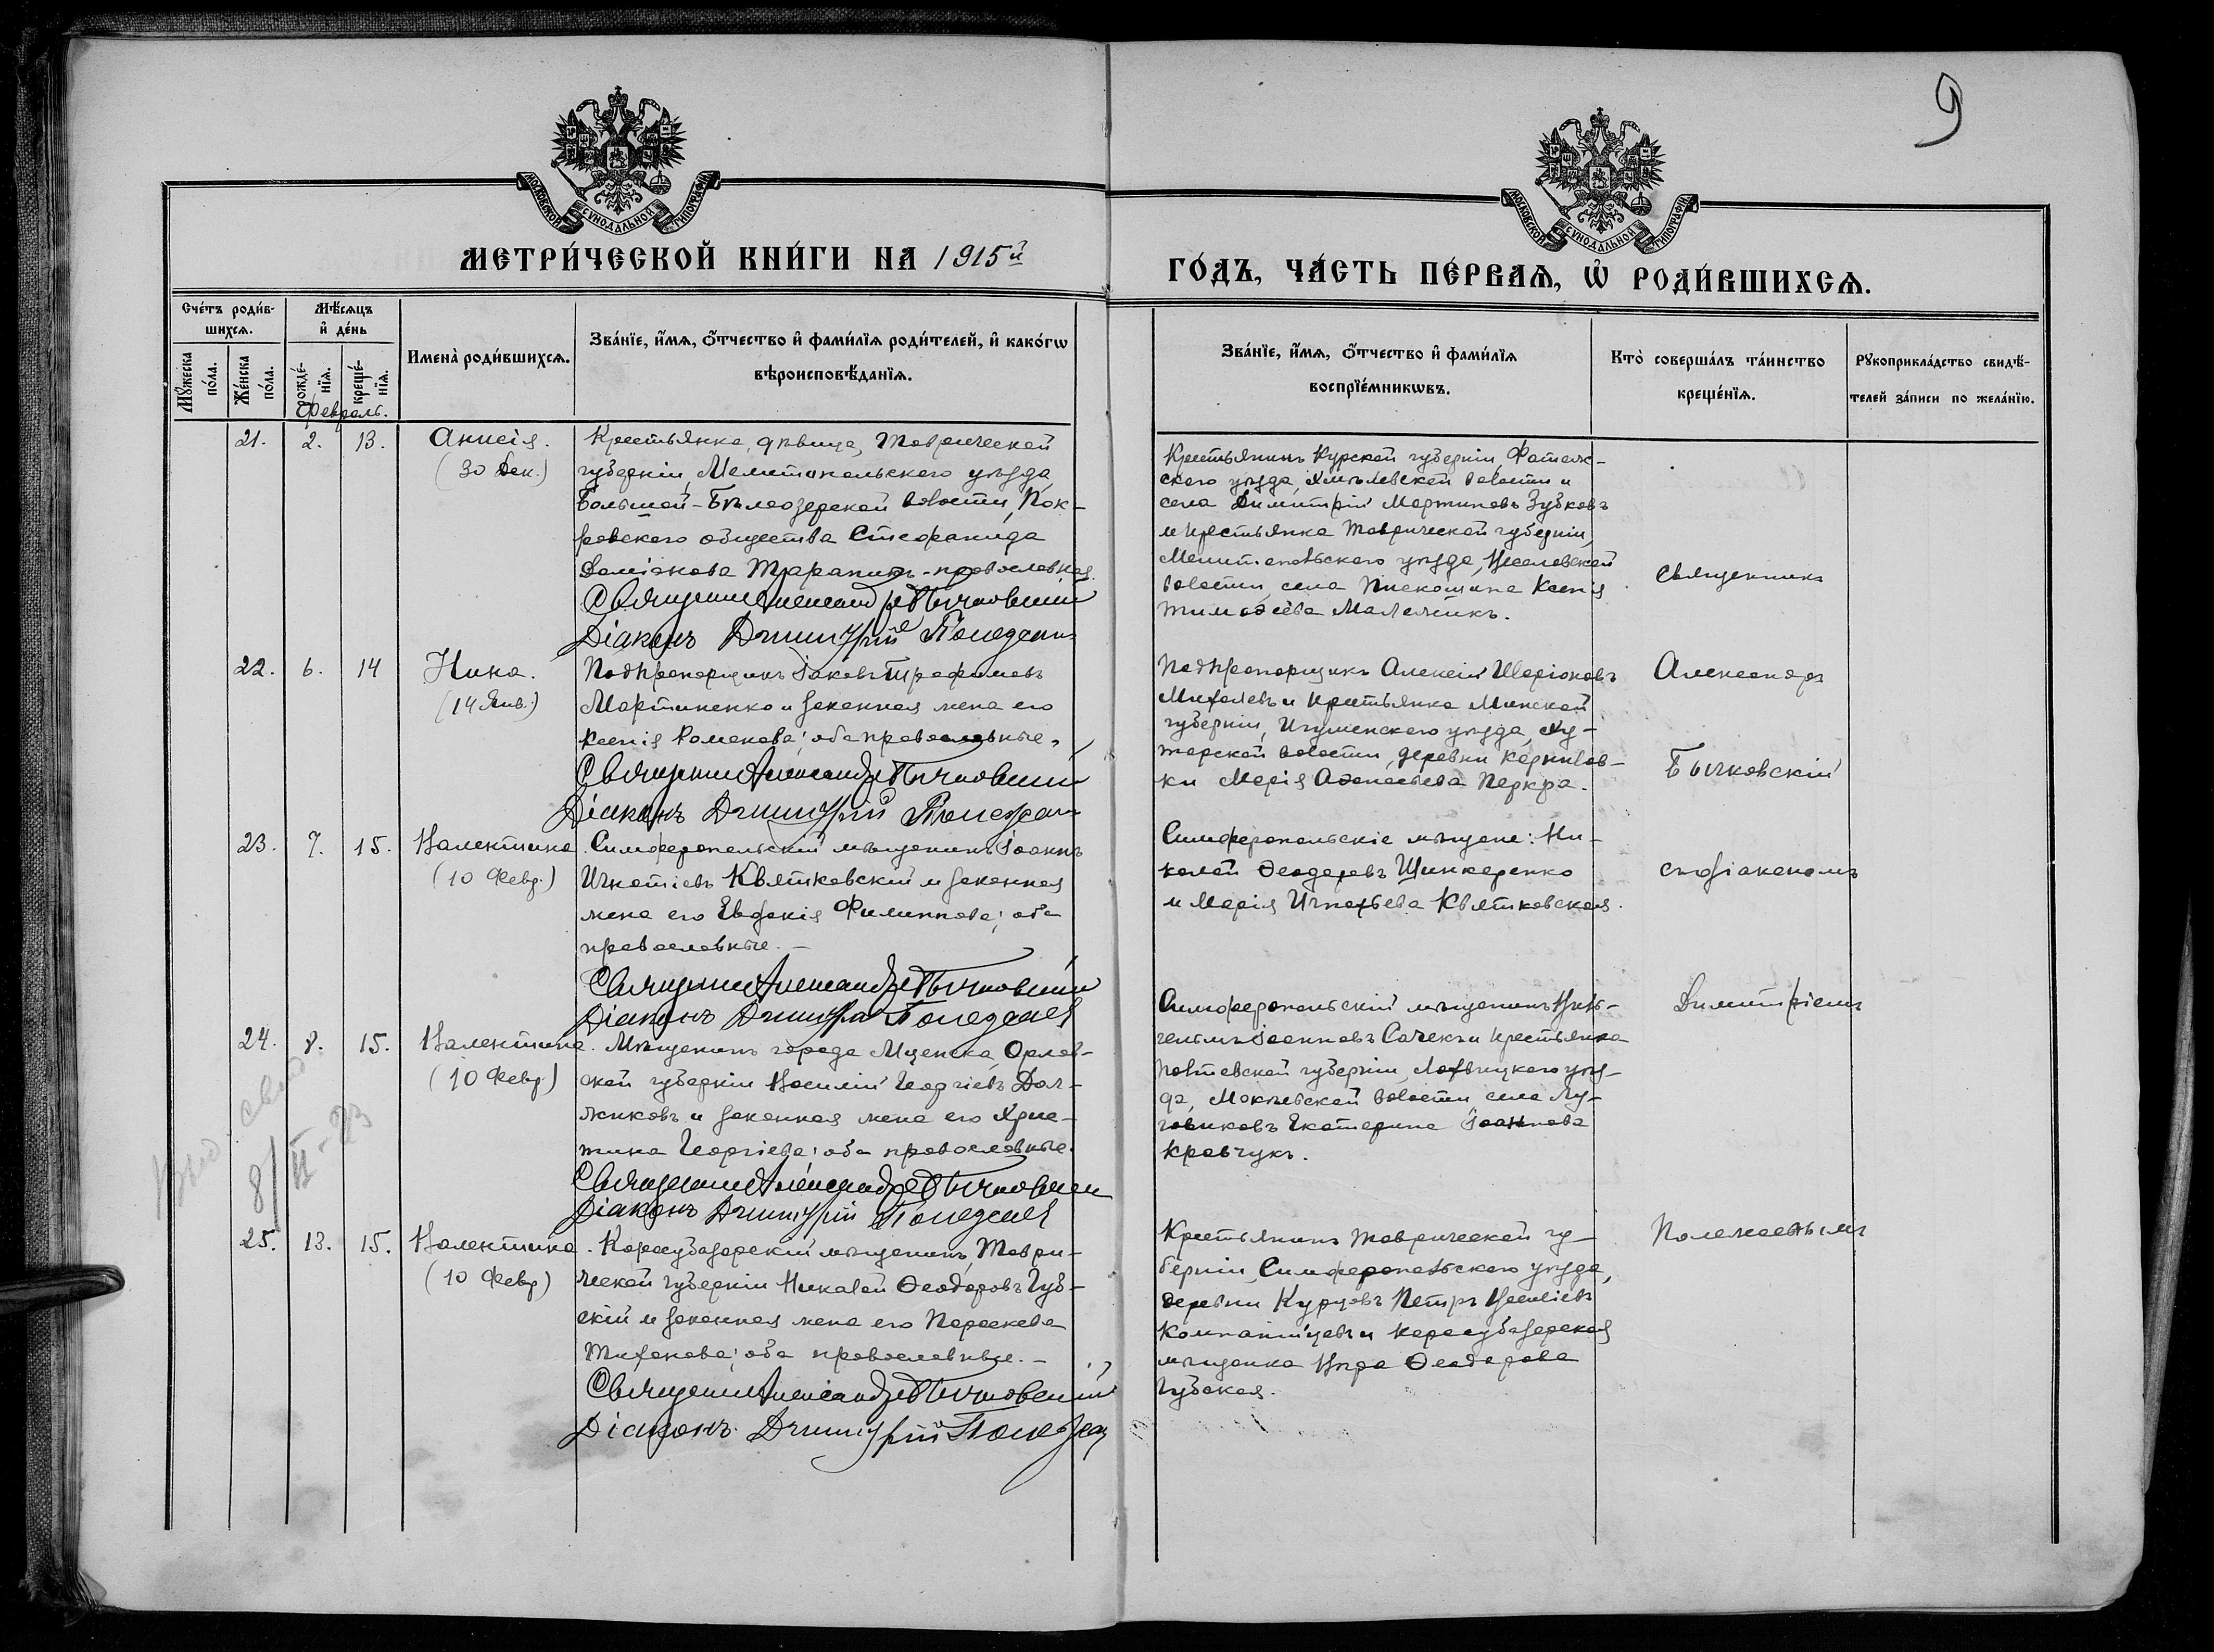 9
МОСКОВСКОЙ СѴНОДАЛЬНОЙ ТИПОГРАФІИ
МОСКОВСКОЙ СѴНОДАЛЬНОЙ ТИПОГРАФІИ
МЕТРИ́ЧЕСКОЙ КНИ́ГИ НА 1915й
ГО́ДЪ, ЧА́СТЬ ПЕ́РВАѦ, Ѡ҆ РОДИ́ВШИХСѦ.
Сче́тъ роди́в-
шихсѧ.
Мꙋ́жеска по́ла.
Же́нска по́ла.
Мѣ́сѧцъ
и҆ де́нь
рожде́-нїѧ.
креще́-нїѧ.
Февраль.
Имена̀ роди́вшихсѧ.
Зва́нїе, и҆́мѧ, ѻ҆́тчество и҆ фами́лїѧ роди́телей, и҆ како́гѡ
вѣроисповѣ́данїѧ.
Зва́нїе, и҆́мѧ, ѻ҆́тчество и҆ фами́лїѧ
воспрїе́мникѡвъ.
Кто̀ соверша́лъ та́инство
креще́нїѧ.
Рꙋкоприкла́дство свидѣ́-
телей за́писи по жела́нїю.
21. 2. 13. Анисія.
(30 Дек.)
Крестьянка, дѣвица, Таврической
губерніи, Мелитопольскаго уѣзда,
Большой-Бѣлозерской волости, Пок-
ровскаго общества Стефанида
Даміанова Таранъ - православная.
Священникъ Александръ Бычковскій
Діаконъ Димитрій
Крестьянинъ Курской губерніи, Фатеж-
скаго уѣзда, Хмѣлевской волости и
села Димитрій Мартиновъ Зубковъ
и крестьянка Таврической губерніи,
Мелитопольскаго уѣзда, Веселовской
волости, села Ксенія
Тимоѳеева
священникъ
22. 6. 14 Нина.
(14 Янв.)
Подпрапорщикъ Іаковъ Трофимовъ
Мартиненко и законная жена его
Ксенія Романова; оба православные.
Священникъ Александръ Бычковскій
Діаконъ Димитрій
Подпрапорщикъ Алексій Иларіоновъ
Михалевъ и крестьянка Минской
губерніи, Игуменскаго уѣзда, Ху-
торской волости, деревни Карпилов-
ки Марія Аѳанасьева
Александръ
Бычковскій
23. 7. 15. Валентина
(10 Февр.)
Симферопольскій мѣщанинъ Іоаннъ
Игнатіевъ Квятковскій и законная
жена его Евдокія Филиппова; оба
православные. -
Священникъ Александръ Бычковскій
Діаконъ Димитрій
Симферопольскіе мѣщане: Ни-
колай Ѳеодоровъ Шинкаренко
и Марія Игнатьева Квятковская.
съ діакономъ
24. 8. 15. Валентина
(10 Февр.)
8/II-23
Мѣщанинъ города Мценска, Орлов-
ской губерніи Василій Георгіевъ Дол-
жиковъ и законная жена его Хрис-
тина Георгіева; оба православные.
Священникъ Александръ Бычковскій
Діаконъ Димитрій
Симферопольскій мѣщанинъ
Іоанновъ и крестьянка
Полтавской губерніи, Лохвицкаго уѣз-
да, волости села Лу-
говиковъ Екатерина Іоаннова
Кравчукъ.
Димитріемъ
25. 13. 15. Валентина
(10 Февр.)
Карасубазарскій мѣщанинъ, Таври-
ческой губерніи Николай Ѳеодоровъ Губ-
скій и законная жена его Параскева
Тихонова; оба православные. -
Священникъ Александръ Бычковскій
Діаконъ Димитрій
Крестьянинъ Таврической гу-
берніи, Симферопольскаго уѣзда,
деревни Курцовъ Петръ Василіевъ
Компанійцевъ и карасубазарская
мѣщанка Вѣра Ѳеодорова
Губская.